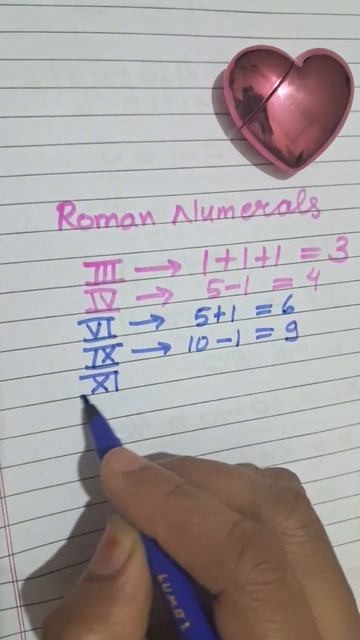 Roman Numerals
III → 1+1+1 = 3
IV → 5-1 = 4
VI → 5+1 = 6
IX → 10-1 = 9
XI